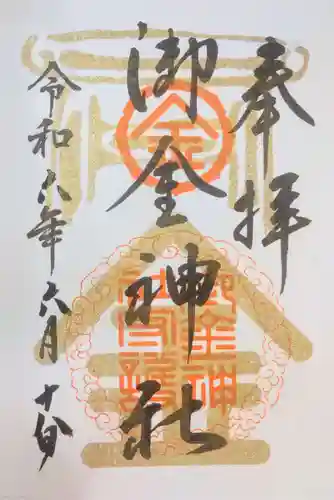 奉拝
御金神社
令和六年 六月 日
金
御金神